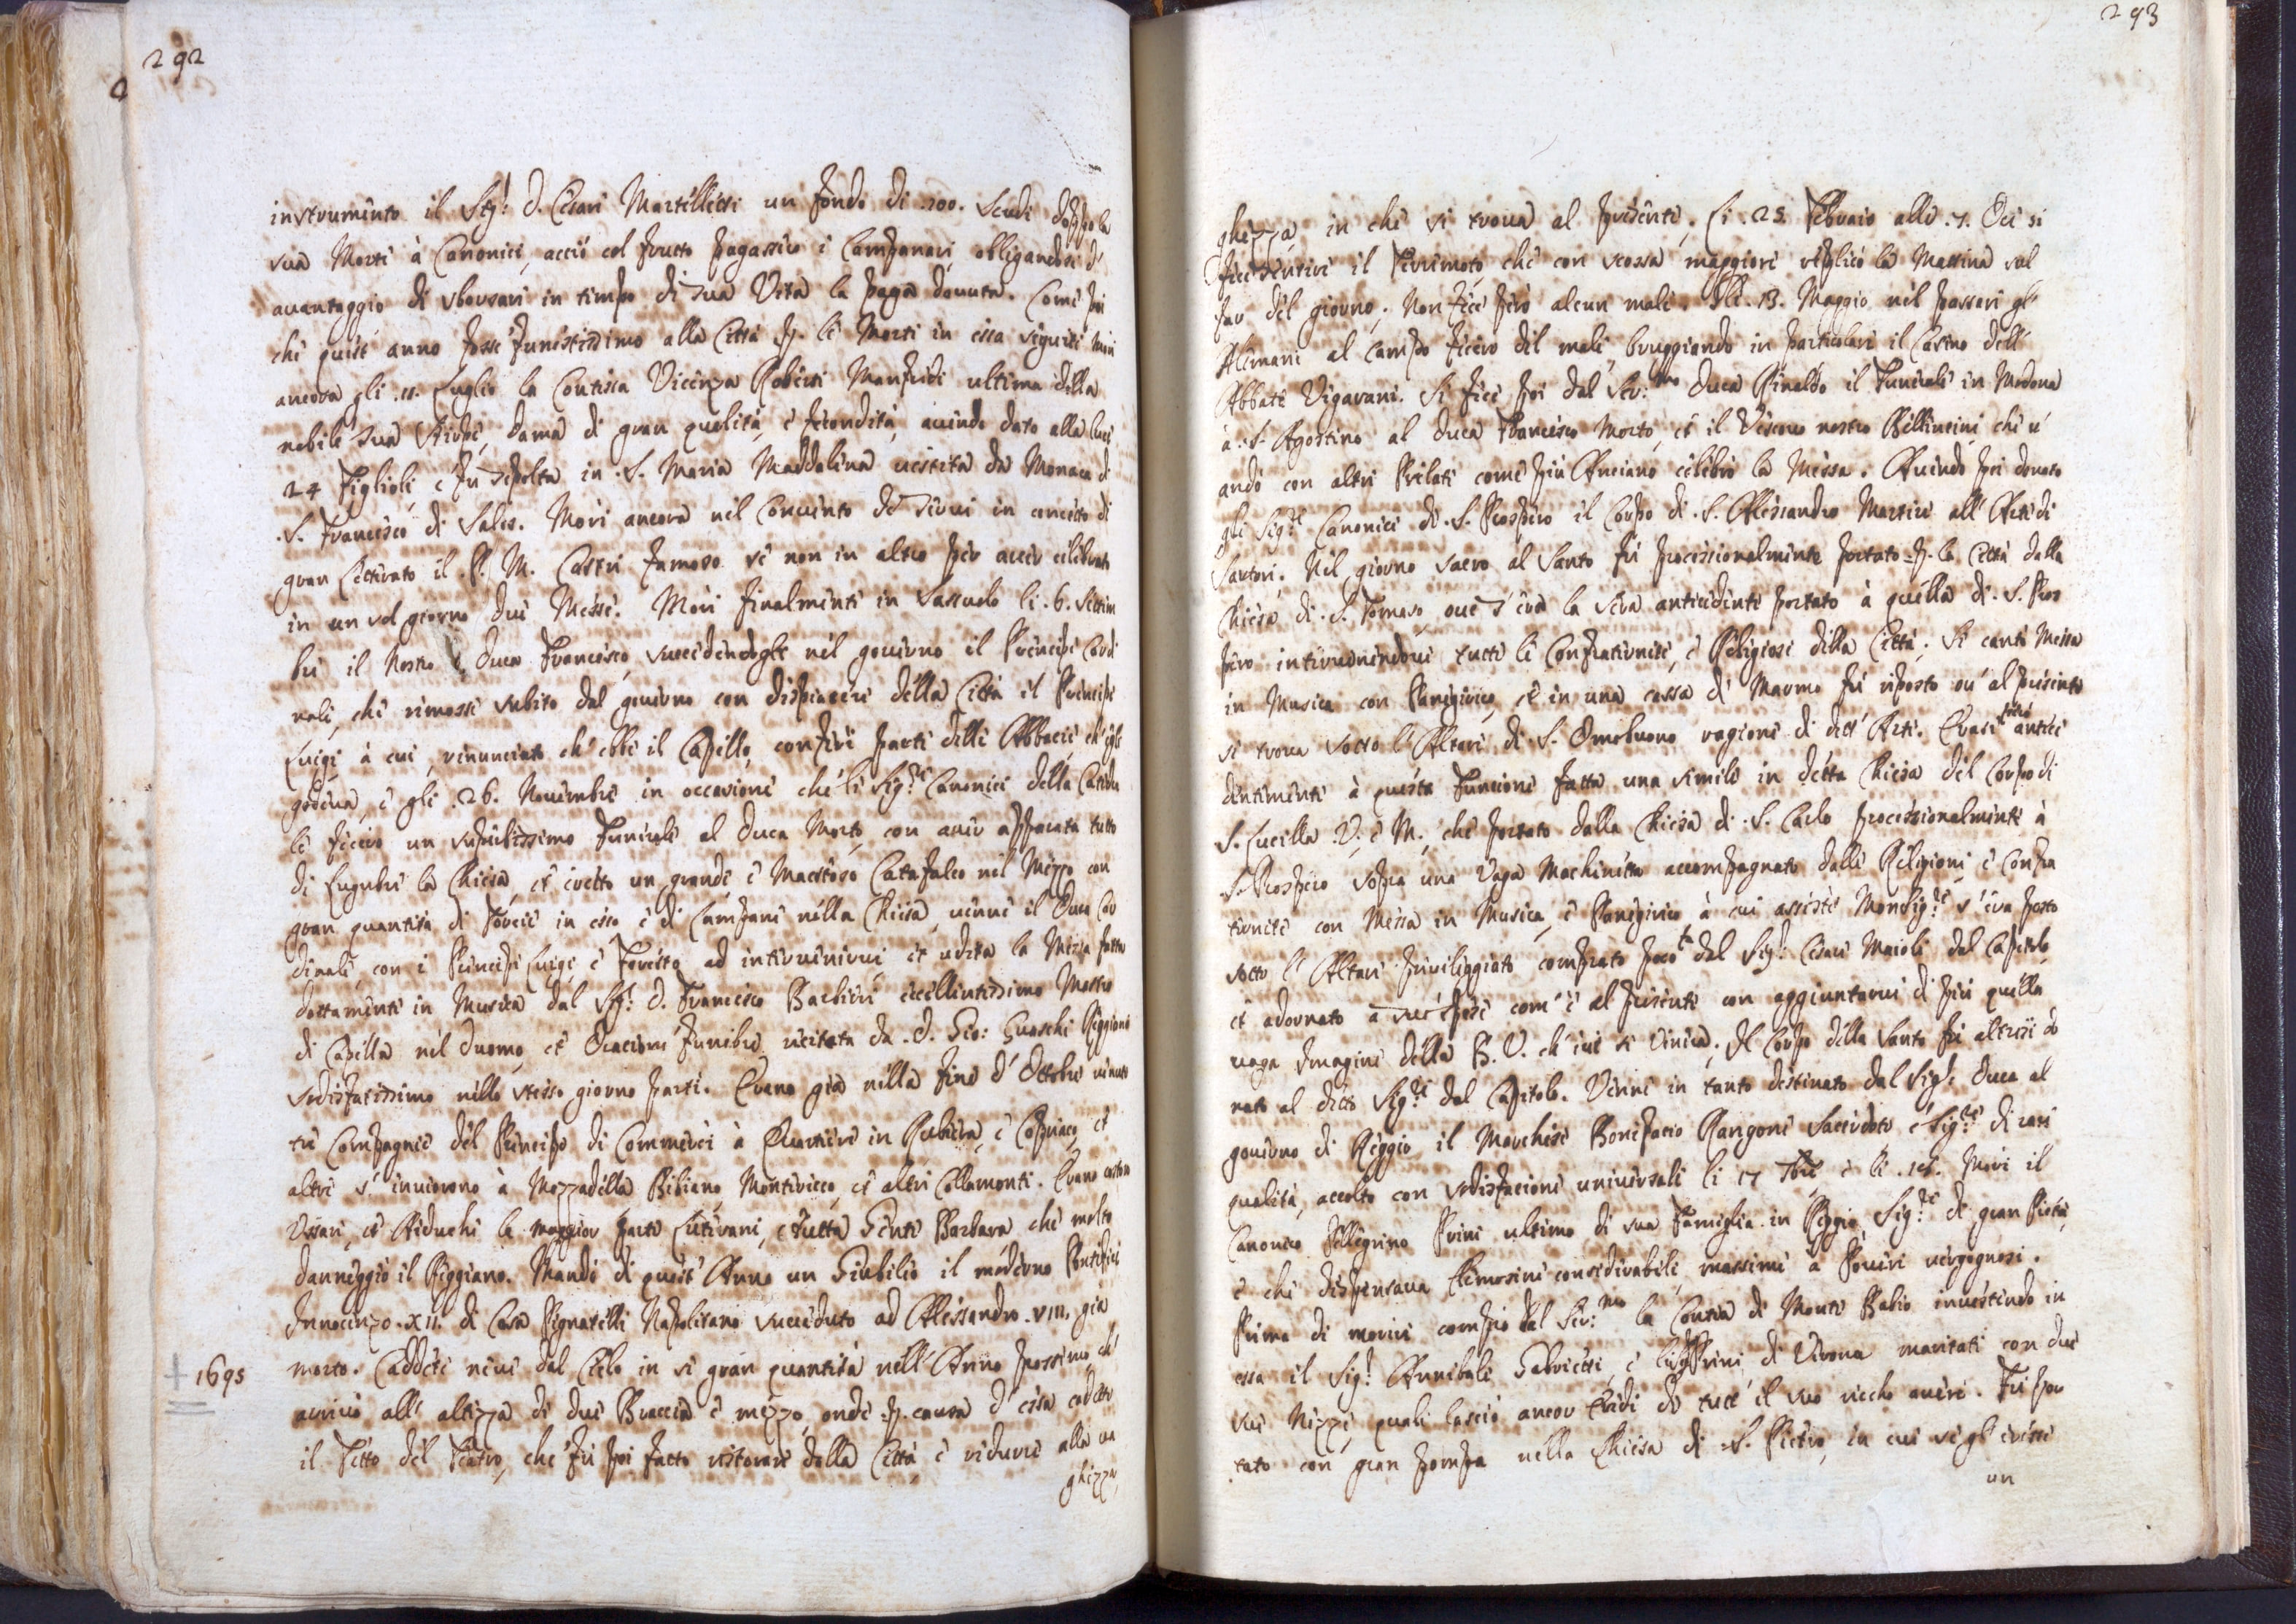 292
instrumento il Sig.r D. Cesare Martellini un fondo di .200. Scudi doppo la
sua Morte à Canonici, acciò col frutto pagassero i Campanari obligandosi d'
avantaggio di sborsare in tempo di sua Vita la paga dovuta. Come poi
che quest' anno fosse funestissimo alla Città p. le Morti in essa seguite morì
ancora gli .11. Luglio la Contessa Vicenza Roberti Manfredi ultima della
nobile sua Stirpe, Dama di gran qualità, e fecondità, avendo dato alla luce
24 Figlioli, e fu sepolta in .S. Maria Maddalena vestita da Monaca di
.S. Francesco di Sales. Morì ancora nel Convento de Servi in concetto di
gran Letterato il P. M. Castri famoso se non in altro per aver celebrato
in un sol giorno due Messe. Morì finalmente in Sassuolo li .6. Settem
bre il Nostro Duca Francesco, succedendogli nel governo il Principe Cardi
nale, che rimosse subito dal governo con dispiacere della Città il Principe
Luigi à cui, rinunciato ch' ebbe il Capello, conferì parte delle Abbacie ch' egli
godeva, e gli .26. Novembre in occasione che li Sig.ri Canonici della Catedra
le fecero un superbissimo Funerale al Duca Morto, con aver apparata tutta
di Lugubre la Chiesa, et eretto un grande, e Maestoso Catafalco nel Mezzo con
gran quantità di Torcie in esso e di Lampane nella Chiesa, venne il Duca Car
dinale, con i Principi Luigi, e Foresto ad intervenirvi et udita la Messa fatta
dottamente in Musica dal Sig.r D. Francesco Barbieri eccellentissimo Mastro
di Capella nel Duomo, et Oracione funebre recitata da .D. Gio: Guaschi Reggiano
sodisfatissimo nello stesso giorno partì. Erano già nella fine d' Ottobre venute
tre Compagnie del Principe di Commercì à Quartiere in Rubiera, e Corpiaco, et
altre s' inviorono à Mozzadella Bibiano Montericco, et altri Collamonti. Erano costoro
Ussari, et Aiduchi la maggior parte Luterani, e tutta Gente Barbara che molto
danneggiò il Reggiano. Mandò di quest' Anno un Giubilio il moderno Pontefice
Innocenzo .XII. di Casa Pignatelli Napolitano succeduto ad Alessandro .VIII. già
1695 morto. Caddette neve dal Cielo in sì gran quantità nell' Anno prossimo, ch'
arrivò all' altezza di due Braccia e mezzo, onde p. causa d' essa cadette
il Tetto del Teatro, che fù poi fatto ristorare dalla Città e ridurre alla va
ghezza
293
ghezza, in che si trova al presente. Li .25. Febraio alle .7. Ore si
fece sentire il Terremoto che con scossa maggiore replicò la Mattina sul
far del giorno; Non fece però alcun male. Alli .13. Maggio nel passare gl'
Alemani al Campo fecero del male, bruggiando in particolare il Casino dell'
Abbate Vigarani. Si fece poi dal Ser:mo Duca Rinaldo il Funerale in Modena
à .S. Agostino al Duca Francesco Morto, et il Vescovo nostro Bellincini che v'
andò con altri Prelati come più Anciano celebrò la Messa. Avendo poi donato
gli Sig.ri Canonici di .S. Prospero il Corpo di .S. Alessandro Martire all' Arte di
Sartori. Nel giorno sacro al Santo fù processionalmente portato p. la Città dalla
Chiesa di .S. Tomaso, ove s' era la sera antecedente portato à quella di .S. Pros
pero intervenendovi tutte le Confraternite, e Religiosi della Città; Si cantò Messa
in Musica con Panegirico, et in una cassa di Marmo fù riposto ov' al presente
si trova sotto l' Altare di S. Omobuono ragione di dett' Arte. Erasi fatta antece
dentemente à questa Funcione fatta una simile in detta Chiesa del Corpo di
S. Lucilla .V. e M., che portato dalla Chiesa di .S. Carlo processionalmente à
.S. Prospero sopra una Vaga Machinetta accompagnato dalle Religioni, e Confra
ternite con Messa in Musica, e Panegirico à cui assistè Monsig.re s' era posto
sotto l' Altare priviliggiato comprato poco fa dal Sig.r Cesare Maioli dal Capitolo,
et adornato à sue spese com' è al presente con aggiuntarvi di più quella
vaga Imagine della B. V. ch' ivi si Venera. Il Corpo della Santa fù altresì do
nato al detto Sig.re dal Capitolo. Venne in tanto destinato dal Sig.r Duca al
governo di Reggio il Marchese Bonifacio Rangone Sacerdote, e Sig.re di rare
qualità, accolto con sodisfacione universale li 17 7bre e li .18. Morì il
Canonico Pellegrino Prini ultimo di sua Famiglia in Reggio Sig.re di gran Pietà,
e che dispensava Elemosine considerabili, massime à Poveri vergognosi.
Prima di morire comprò dal Ser:mo la Contea di Monte Babio investendo in
essa il Sig.r Annibale Gabrietti, e li Prini di Verona maritati con due
sue Nezze, quali lasciò ancor Eredi di tutt' il suo ricco avere. Fù por
tato con gran pompa nella Chiesa di .S. Pietro, in cui se gl' eresse
un